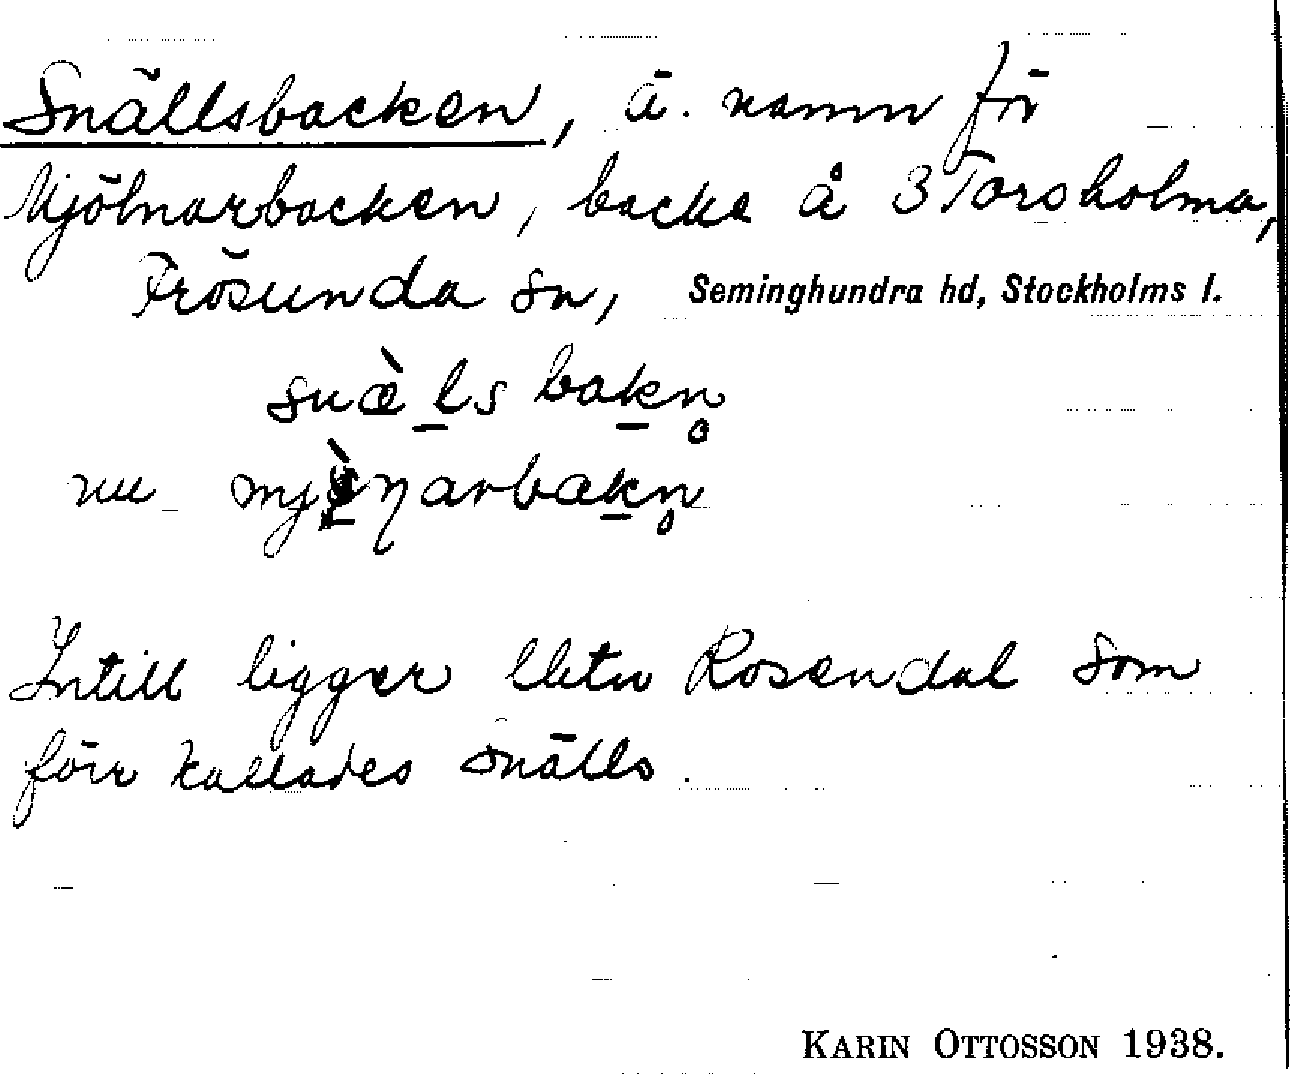 Snällsbacken, ä. namn för
Mjölnarbacken, backe å 3 Torsholma,
Frösunda sn, Seminghundra hd, Stockholms l.
snæ̀l̲s bak̲n̥
nu arbak̲n̥
Intill ligger lht Rosendal som
förr kallades Snälls.
KARIN OTTOSSON 1938.